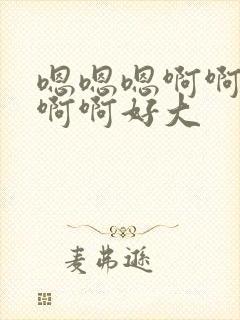 嗯嗯嗯啊啊
啊啊好大
麦弗逊